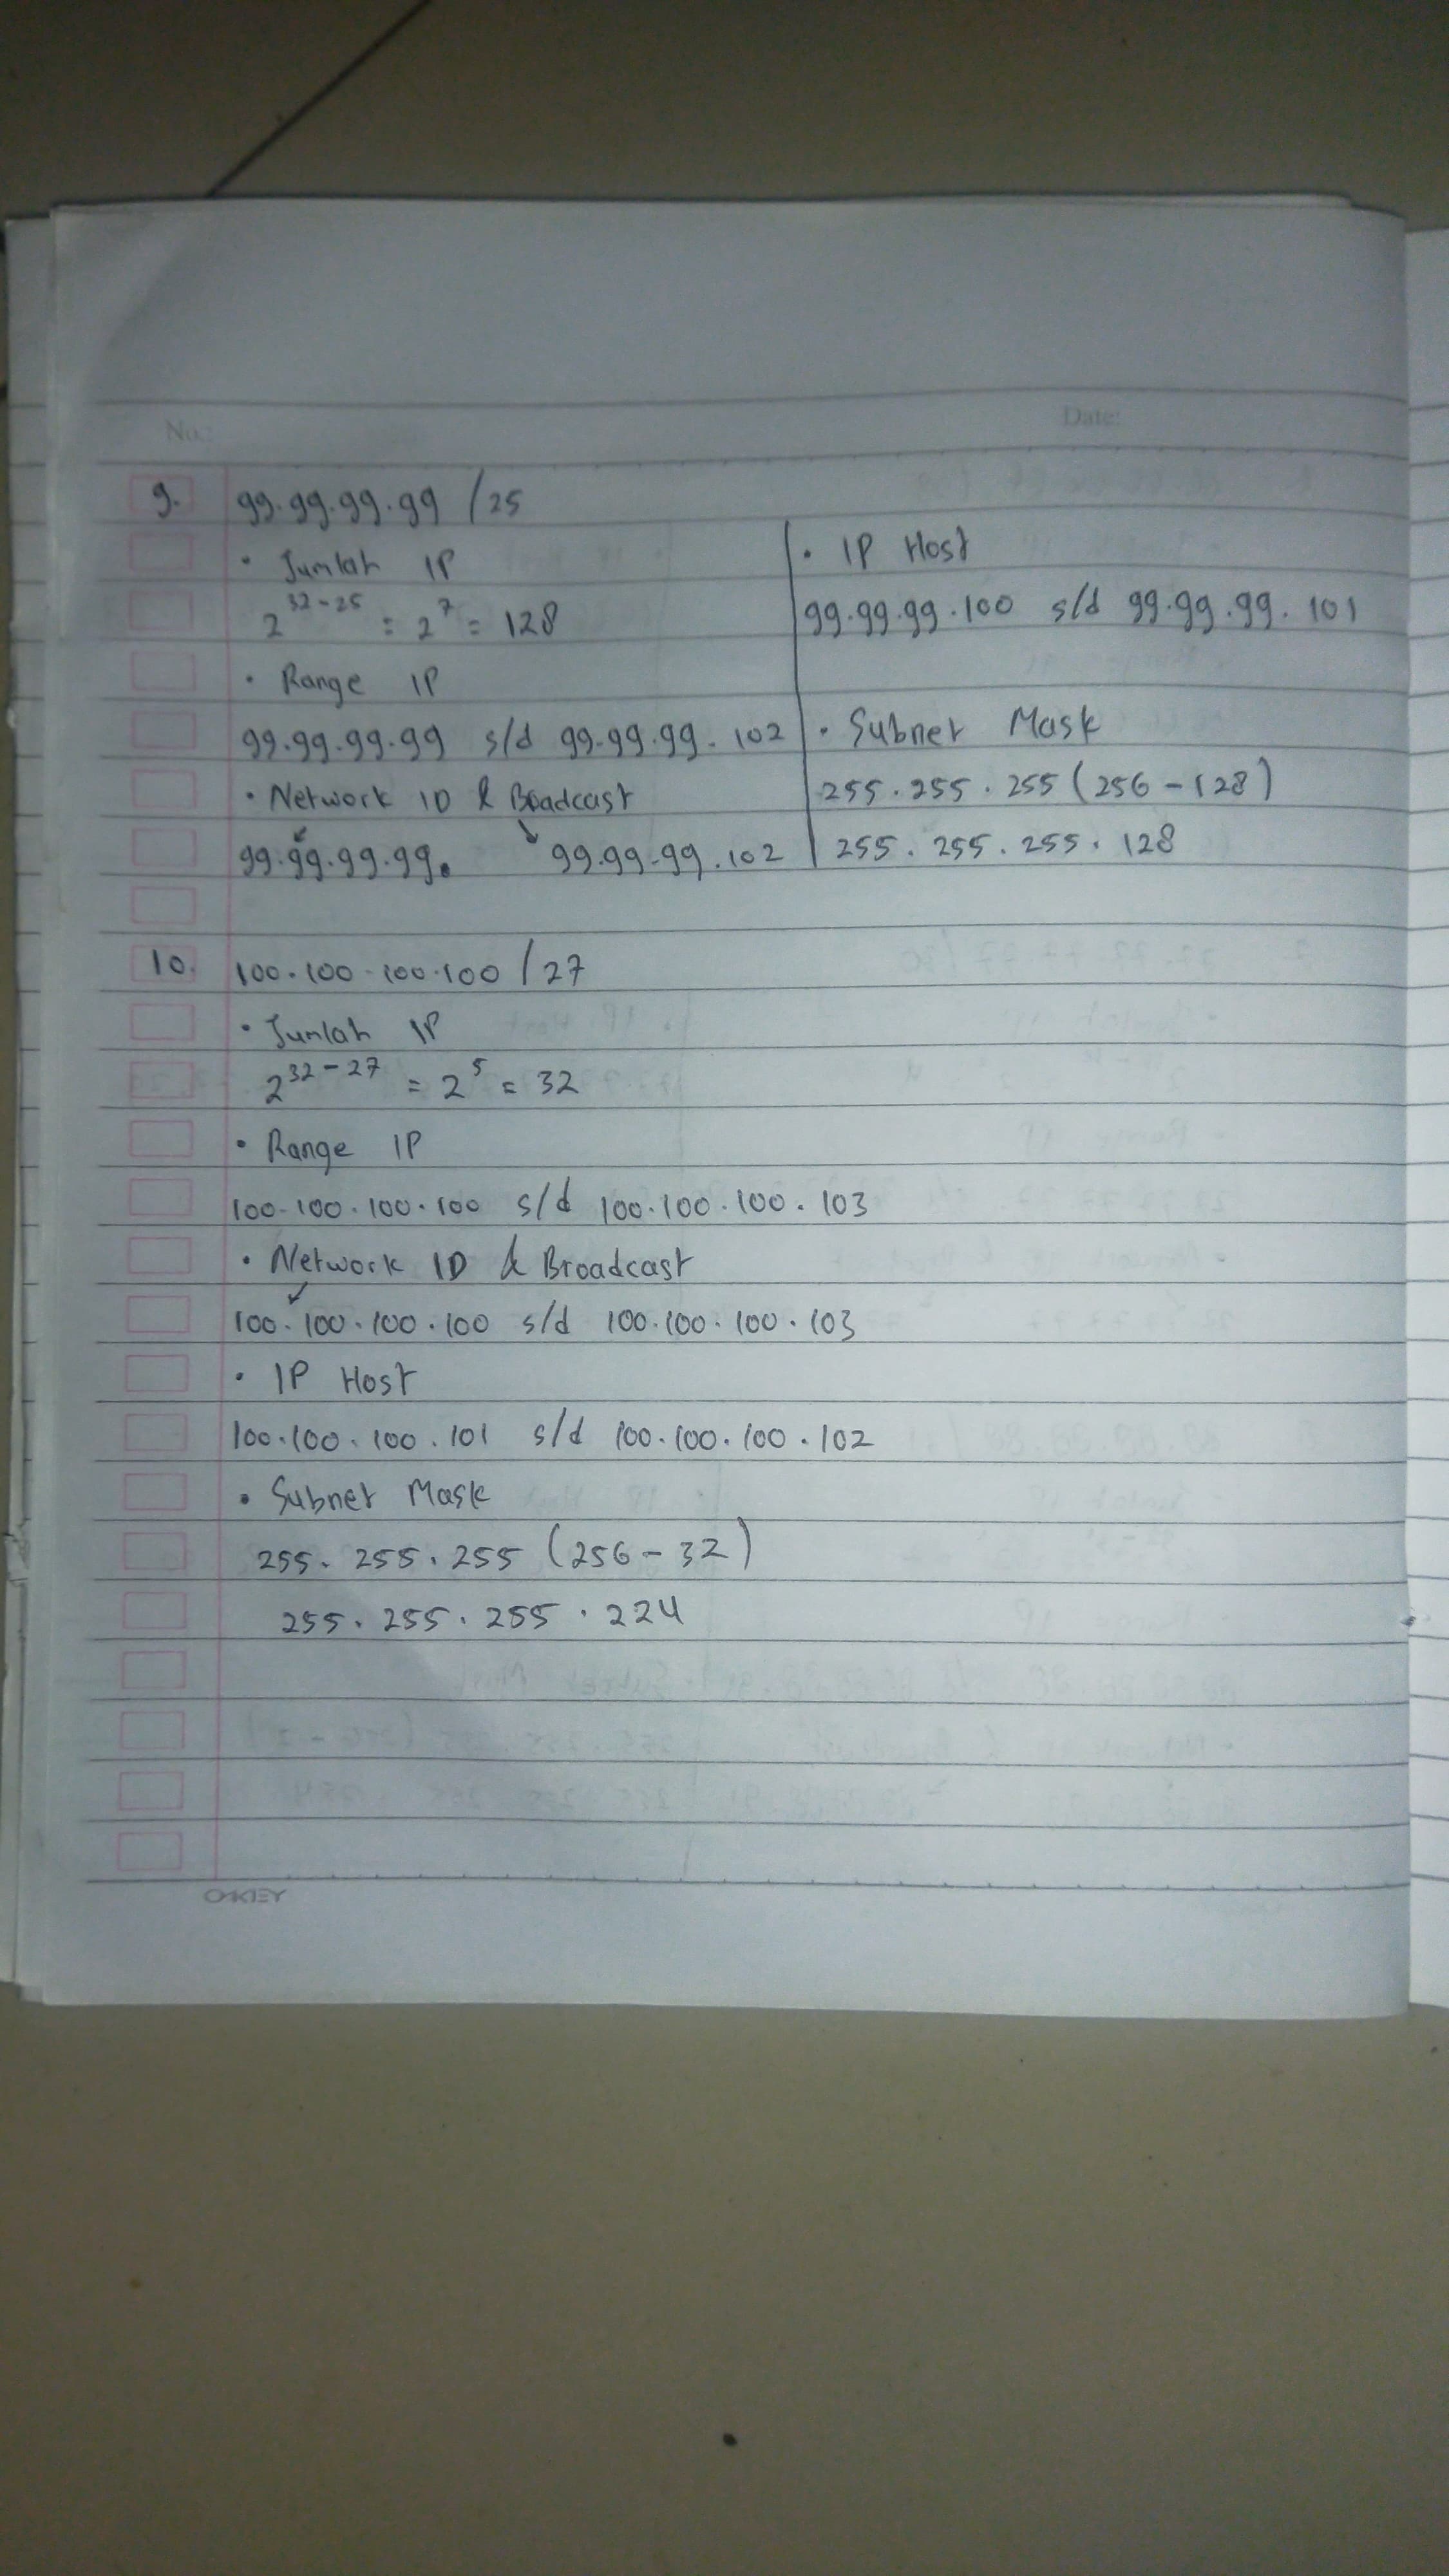 No.:
Date:
9. 99.99.99.99 /25
• Jumlah IP
2^32-25 = 2^7 = 128
• Range IP
99.99.99.99 s/d 99.99.99.102
• Network ID & Broadcast
99.99.99.99. 99.99.99.102
• IP Host
99.99.99.100 s/d 99.99.99.101
• Subnet Mask
255.255.255 (256-128)
255.255.255.128
10. 100.100.100.100 /27
• Jumlah IP
2^32-27 = 2^5 = 32
• Range IP
100.100.100.100 s/d 100.100.100.103
• Network ID & Broadcast
100.100.100.100 s/d 100.100.100.103
• IP Host
100.100.100.101 s/d 100.100.100.102
• Subnet Mask
255.255.255 (256-32)
255.255.255.224
OAKLEY